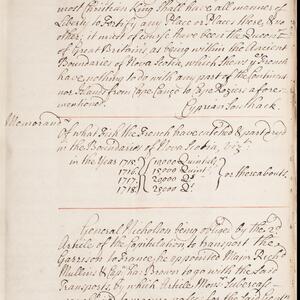 most Christian King Shall have all manner of
Liberty to Fortify any Place or Places there, & no
other, it must of course have been the Queen
of Great Britain, as being within the Ancient
Boundaries of Nova Scotia, which Shews ye French
have nothing to do with any part of the Continent
nor Islands from Cape Canço to Cape Roziers afore-
mentioned.
Cyprian Southack
Memorandm
Of what Fish the French have catched & part dry'd
in the Boundaries of Nova Scotia, Vizt.
in the Year 1715 Quintals,
1716 15000 Quint.
1717 Qs.
1718 23000 Qs.
or thereabouts.
General Nicholson being obliged by the 2d
Article of the Capitulation to transport the
Garrison to France, he appointed Major Richd
Mullins & Brown to go with the said
Transports, by which Article Monsr Subercase